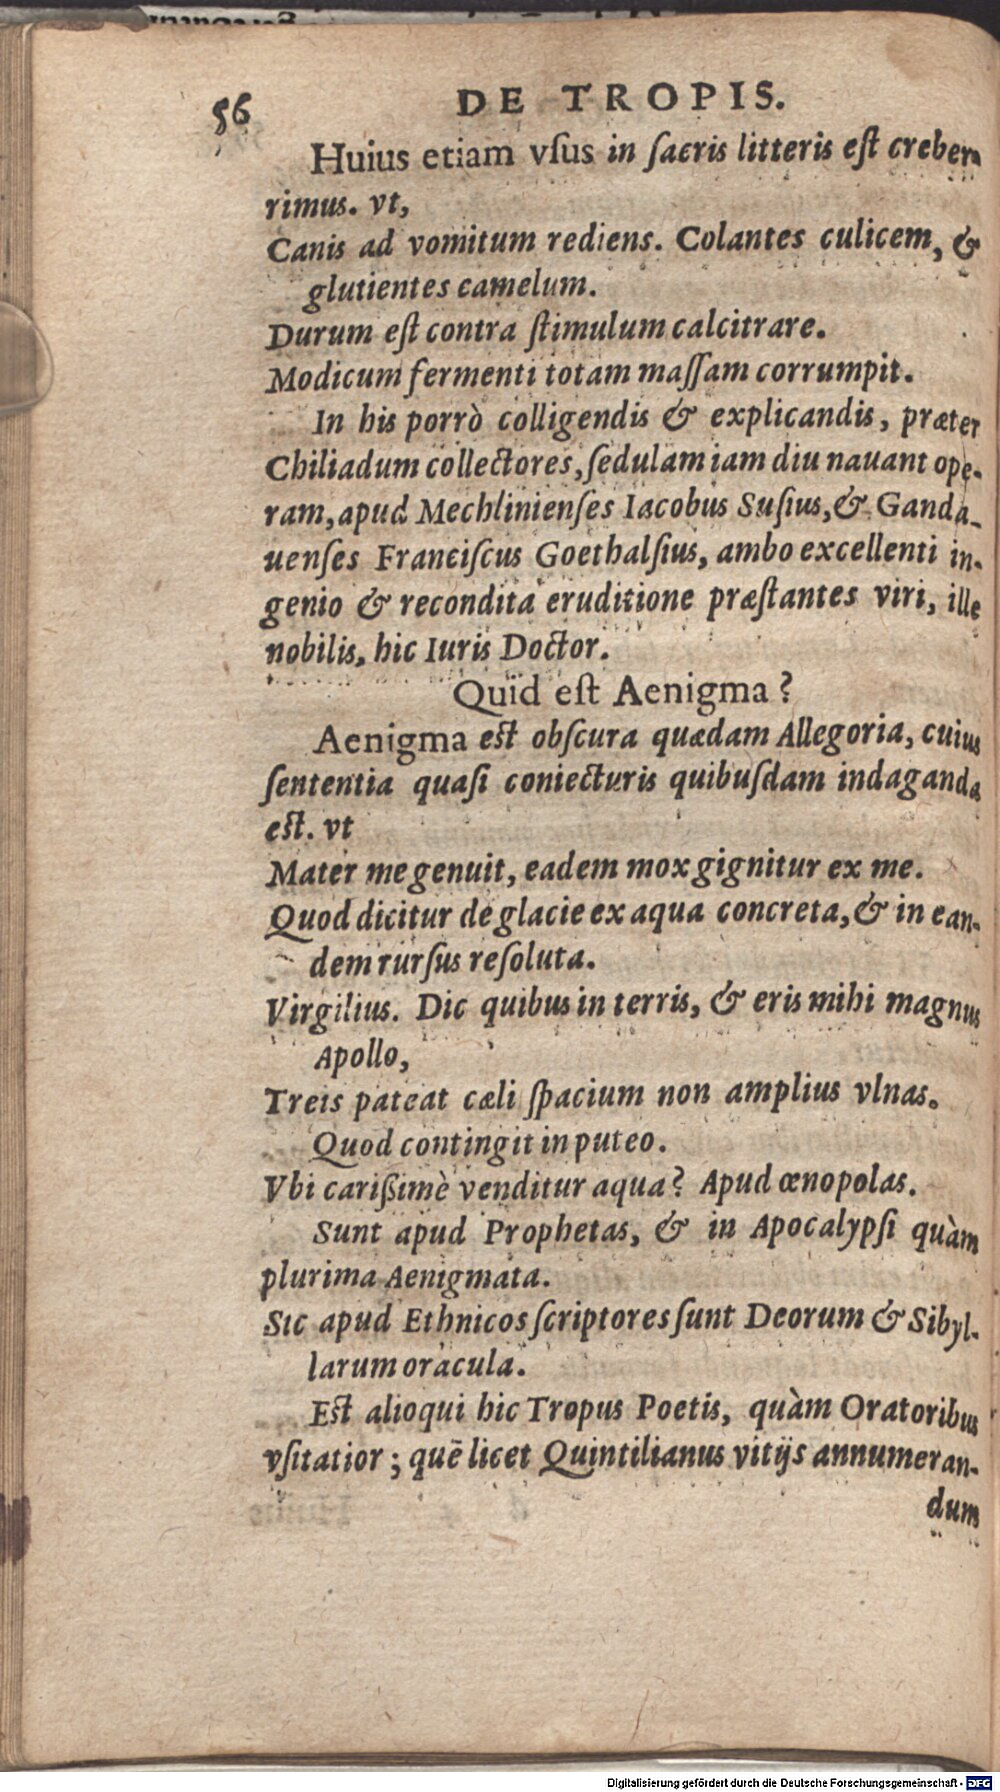 56 DE TROPIS.
Huius etiam vſus in ſacris litteris eſt creber-
rimus. vt,
Canis ad vomitum rediens. Colantes culicem, &
glutientes camelum.
Durum eſt contra ſtimulum calcitrare.
Modicum fermenti totam maſſam corrumpit.
In his porrò colligendis & explicandis, præter
Chiliadum collectores, ſedulam iam diu nauant ope-
ram, apud Mechlinienſes Iacobus Suſius, & Ganda-
uenſes Franciſcus Goethalſius, ambo excellenti in-
genio & recondita eruditione præſtantes viri, ille
nobilis, hic Iuris Doctor.
Quid eſt Aenigma?
Aenigma eſt obſcura quædam Allegoria, cuius
ſententia quaſi coniecturis quibuſdam indaganda
eſt. vt
Mater me genuit, eadem mox gignitur ex me.
Quod dicitur de glacie ex aqua concreta, & in ean-
dem rurſus reſoluta.
Virgilius. Dic quibus in terris, & eris mihi magnus
Apollo,
Treis pateat cæli ſpacium non amplius vlnas.
Quod contingit in puteo.
Vbi cariſsimè venditur aqua? Apud œnopolas.
Sunt apud Prophetas, & in Apocalypſi quàm
plurima Aenigmata.
Sic apud Ethnicos ſcriptores ſunt Deorum & Sibyl-
larum oracula.
Eſt alioqui hic Tropus Poetis, quàm Oratoribus
vſitatior; quē licet Quintilianus vitijs annumeran-
dum
Digitalisierung gefördert durch die Deutsche Forschungsgemeinschaft - DFG